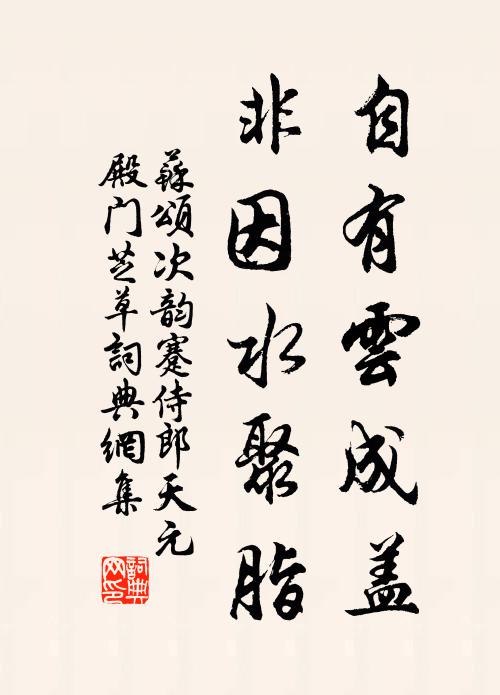 自有雲成盖
非因水聚脂
蘇頌次韵蹇侍郎天元
殿门芝草詞典網集
詞典网印